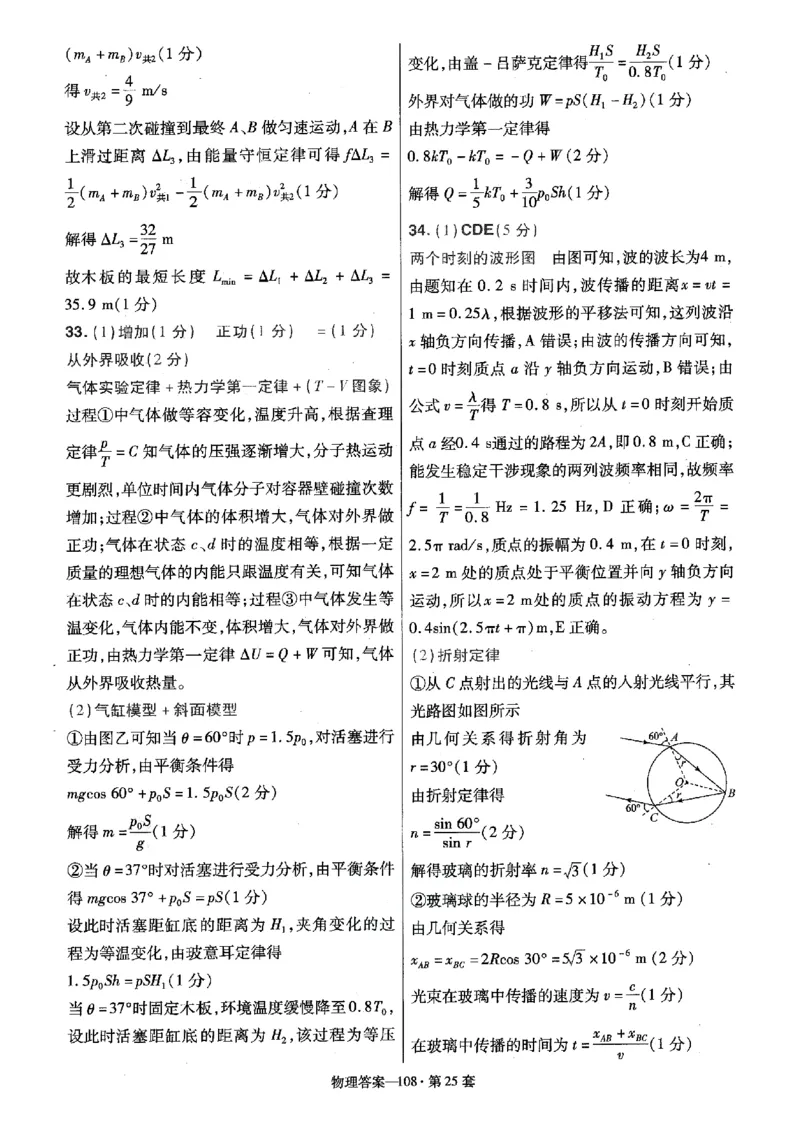 (m_A + m_B)v_共2(1 分)
得 v_共2 = 4/9 m/s
设从第二次碰撞到最终 A、B 做匀速运动,A 在 B
上滑过距离 ΔL₃,由能量守恒定律可得 fΔL₃ =
1/2(m_A + m_B)v²_共1 - 1/2(m_A + m_B)v²_共2(1 分)
解得 ΔL₃ = 32/27 m
故木板的最短长度 L_min = ΔL₁ + ΔL₂ + ΔL₃ =
35.9 m(1 分)
33. (1)增加(1 分) 正功(1 分) =(1 分)
从外界吸收(2 分)
气体实验定律 + 热力学第一定律 + (T - V 图象)
过程①中气体做等容变化,温度升高,根据查理
定律 p/T = C 知气体的压强逐渐增大,分子热运动
更剧烈,单位时间内气体分子对容器壁碰撞次数
增加;过程②中气体的体积增大,气体对外界做
正功;气体在状态 c、d 时的温度相等,根据一定
质量的理想气体的内能只跟温度有关,可知气体
在状态 c、d 时的内能相等;过程③中气体发生等
温变化,气体内能不变,体积增大,气体对外界做
正功,由热力学第一定律 ΔU = Q + W 可知,气体
从外界吸收热量。
(2)气缸模型 + 斜面模型
①由图乙可知当 θ = 60°时 p = 1.5p₀,对活塞进行
受力分析,由平衡条件得
mgcos 60° + p₀S = 1.5p₀S(2 分)
解得 m = p₀S/g (1 分)
②当 θ = 37°时对活塞进行受力分析,由平衡条件
得 mgcos 37° + p₀S = pS(1 分)
设此时活塞距缸底的距离为 H₁,夹角变化的过
程为等温变化,由玻意耳定律得
1.5p₀Sh = pSH₁(1 分)
当 θ = 37°时固定木板,环境温度缓慢降至0.8T₀,
设此时活塞距缸底的距离为 H₂,该过程为等压
变化,由盖 - 吕萨克定律得 H₁S/T₀ = H₂S/0.8T₀ (1 分)
外界对气体做的功 W = pS(H₁ - H₂)(1 分)
由热力学第一定律得
0.8kT₀ - kT₀ = - Q + W(2 分)
解得 Q = 1/5 kT₀ + 3/10 p₀Sh(1 分)
34. (1)CDE(5 分)
两个时刻的波形图 由图可知,波的波长为4 m,
由题知在 0.2 s 时间内,波传播的距离x = vt =
1 m = 0.25λ,根据波形的平移法可知,这列波沿
x 轴负方向传播,A 错误;由波的传播方向可知,
t = 0 时刻质点 a 沿 y 轴负方向运动,B 错误;由
公式 v = λ/T 得 T = 0.8 s,所以从 t = 0 时刻开始质
点 a 经0.4 s通过的路程为 2A,即 0.8 m,C 正确;
能发生稳定干涉现象的两列波频率相同,故频率
f = 1/T = 1/0.8 Hz = 1.25 Hz,D 正确;ω = 2π/T =
2.5π rad/s,质点的振幅为 0.4 m,在 t = 0 时刻,
x = 2 m 处的质点处于平衡位置并向 y 轴负方向
运动,所以x = 2 m处的质点的振动方程为 y =
0.4sin(2.5πt + π)m,E 正确。
(2)折射定律
①从 C 点射出的光线与 A 点的入射光线平行,其
光路图如图所示
由几何关系得折射角为
r = 30°(1 分)
由折射定律得
n = sin 60°/sin r (2 分)
60° A
r
O
r
B
60°
C
解得玻璃的折射率 n = √3(1 分)
②玻璃球的半径为 R = 5 × 10⁻⁶ m (1 分)
由几何关系得
x_AB = x_BC = 2Rcos 30° = 5√3 × 10⁻⁶ m (2 分)
光束在玻璃中传播的速度为 v = c/n (1 分)
在玻璃中传播的时间为 t = (x_AB + x_BC)/v (1 分)
物理答案—108·第 25 套